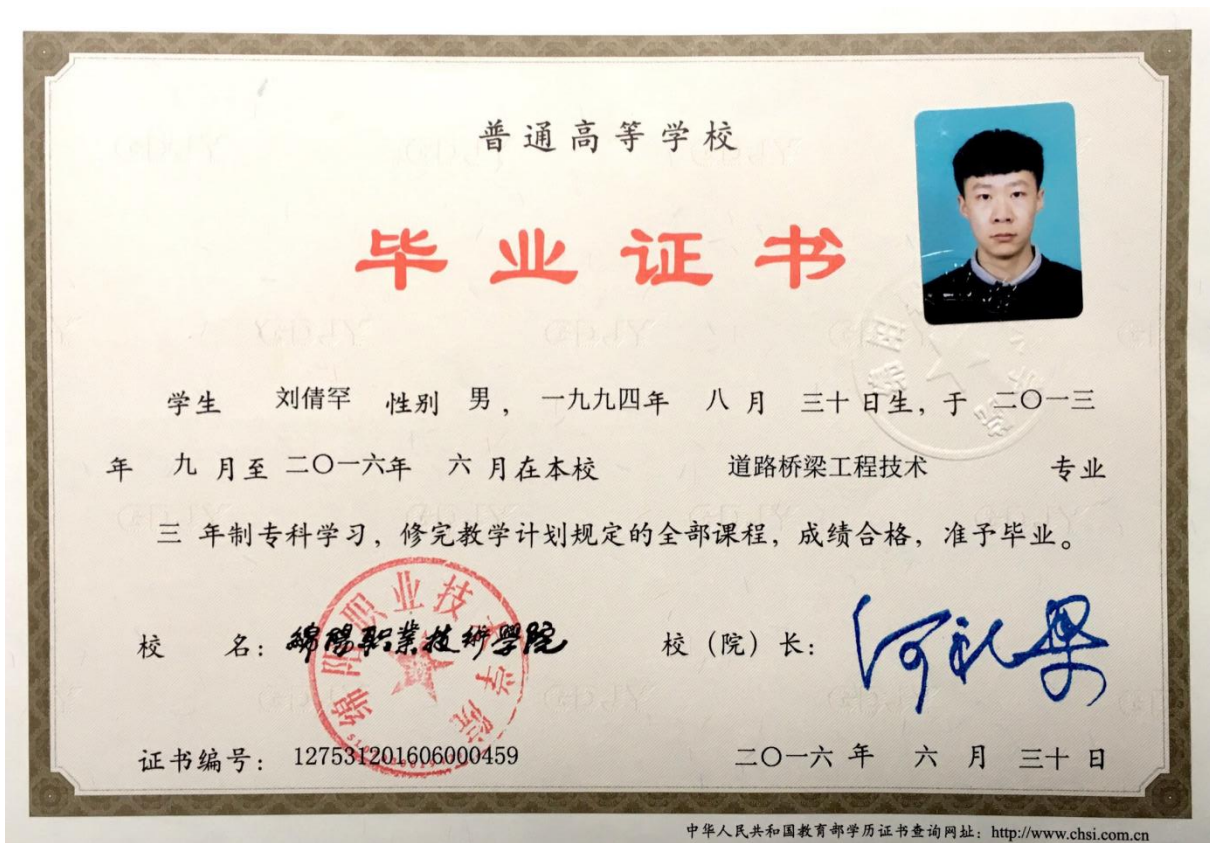 普通高等学校
毕业证书
学生 刘倩罕 性别 男，一九九四年 八 月 三十 日生，于 二〇一三
年 九 月至 二〇一六年 六 月在本校 道路桥梁工程技术 专业
三 年制专科学习，修完教学计划规定的全部课程，成绩合格，准予毕业。
绵阳职业技术学院
校 名：綿陽职業技術學院 校（院）长：
证书编号：127531201606000459 二〇一六 年 六 月 三十 日
中华人民共和国教育部学历证书查询网址：http://www.chsi.com.cn